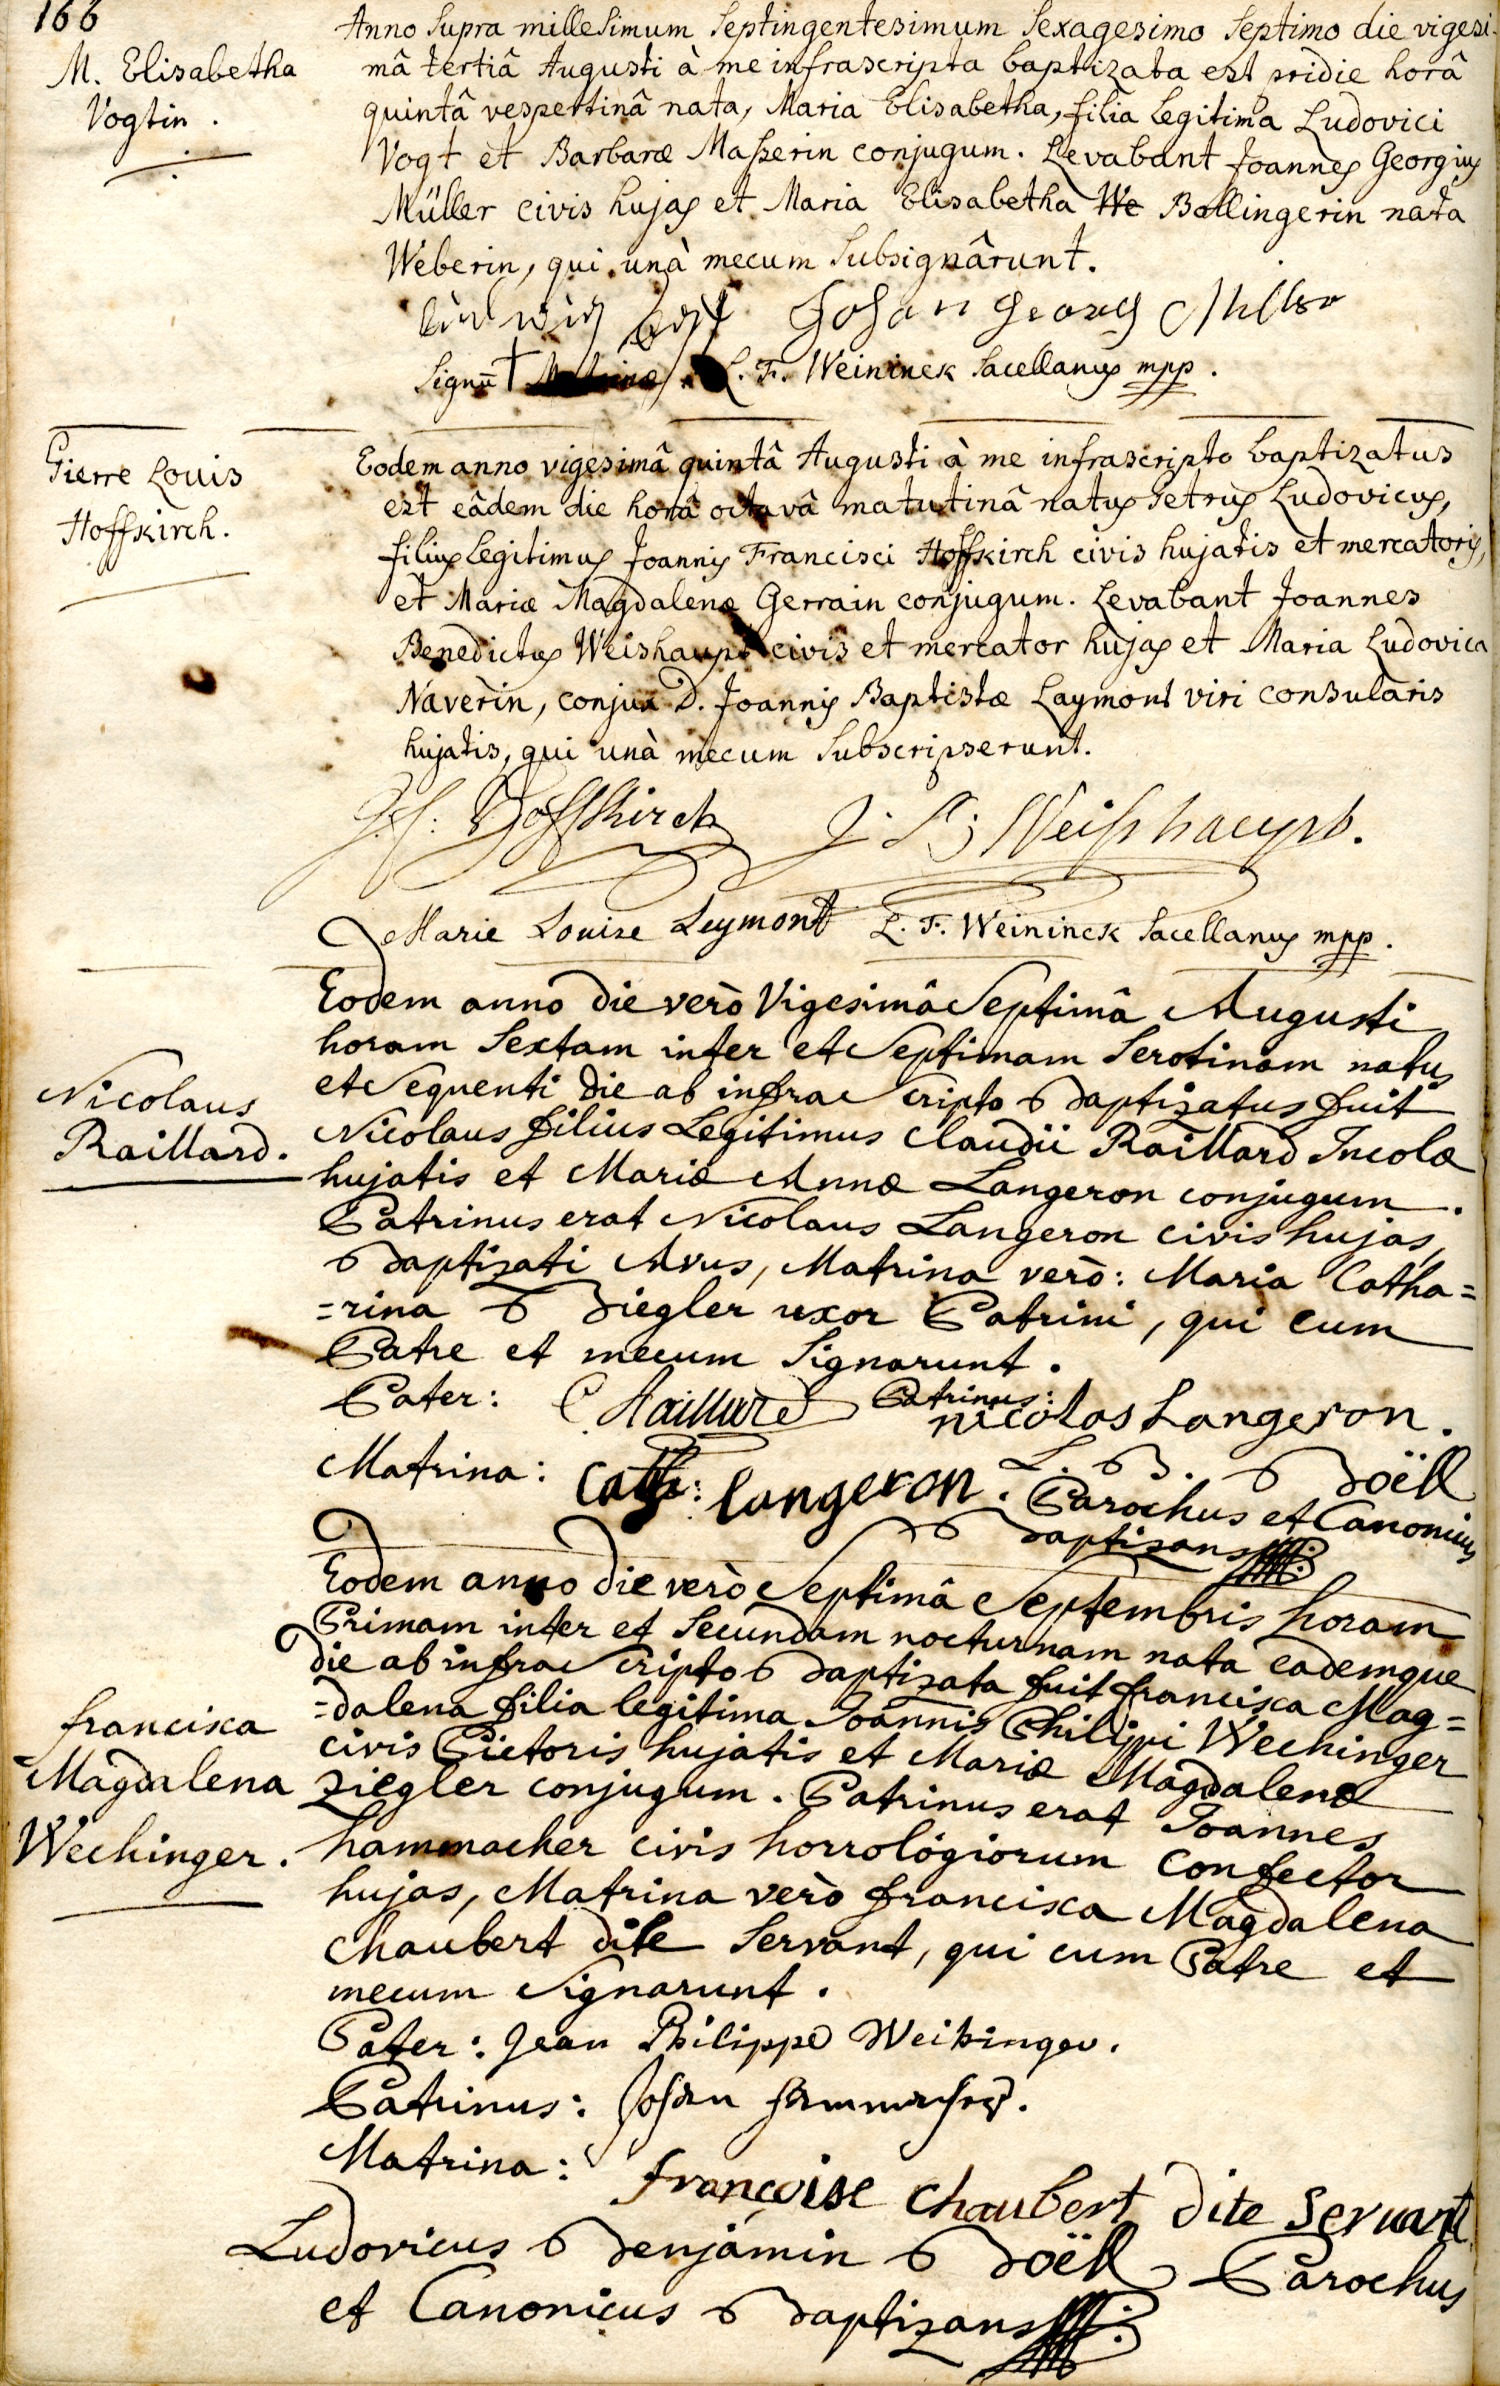 166
M. Elisabetha
Vogtin.
Anno Supra millesimum Septingentesimum Sexagesimo Septimo die vigesi-
mâ tertiâ Augusti à me infrascripta baptizata est pridie horâ
quintâ vespertinâ nata, Maria Elisabetha, filia legitima Ludovici
Vogt et Barbaræ Maßerin conjugum. Levabant Joannes Georgius
Müller civis hujas et Maria Elisabetha We Bollingerin nata
Weberin, qui unà mecum Subsignârunt.
Johan Georg Miller
Signũ † L. F. Weininck Sacellanus mpp.
Pierre Louis
Hoffkirch.
Eodem anno vigesimâ quintâ Augusti à me infrascripto baptizatus
est eâdem die horâ octavâ matutinâ natus Petrus Ludovicus,
filius legitimus Joannis Francisci Hoffkirch civis hujatis et mercatoris,
et Mariæ Magdalenæ Gerrain conjugum. Levabant Joannes
Benedictus Weishaupt civis et mercator hujas et Maria Ludovica
Naverin, conjux D. Joannis Baptistæ Laymont viri consularis
hujatis, qui unà mecum Subscripserunt.
Hoffkirch J. B. Weishaupt.
Marie Louise Leymont L. F. Weininck Sacellanus mpp.
Nicolaus
Raillard.
Eodem anno die verò Vigesimâ Septimâ Augusti
horam Sextam inter et Septimam Serotinam natus
et Sequenti die ab infra Scripto Baptizatus fuit
Nicolaus filius Legitimus Claudii Raillard Incolæ
hujatis et Mariæ Annæ Langeron conjugum.
Patrinus erat Nicolaus Langeron civis hujas,
Baptizati Avus, Matrina verò: Maria Catha=
=rina Biegler uxor Patrini, qui cum
Patre et mecum Signarunt.
Pater: C Raillard Patrinus:
nicolas Langeron.
Matrina: Cath: langeron. L. B. Boëll
Parochus et Canonicus
Baptizans
francisca
Magdalena
Wechinger.
Eodem anno die verò Septimâ Septembris horam
Primam inter et Secundam nocturnam nata eademque
die ab infra Scripto Baptizata fuit francisca Mag=
=dalena filia legitima Joannis Philippi Wechinger
civis Pictoris hujatis et Mariæ Magdalenæ
Ziegler conjugum. Patrinus erat Joannes
hammacher civis horrologiorum confector
hujas, Matrina verò francisca Magdalena
Chaubert dite Servant, qui cum Patre et
mecum Signarunt.
Pater: Jean Philippe Weikinger.
Patrinus: Johan Hammacher.
Matrina: françoise Chaubert dite Servant
Ludovicus Benjamin Boëll Parochus
et Canonicus Baptizans